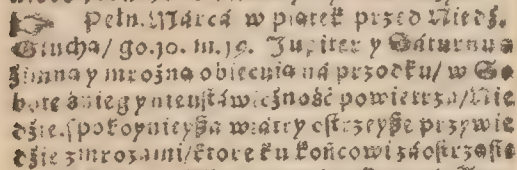 ☞ Pełn. Márcá w piątek przed Niedź.
Głuchą/ go.10. m.19. Jupiter y Sáturnus
źimną y mroźną obiecuią ná przodku/ w So
botę śnieg y nieustáwicżność powietrza/ Nie
dźie. spokoynieyßa wiátry ostrzeyße przywie
dźie z mrozámi/ ktore ku końcowi záostrzą się